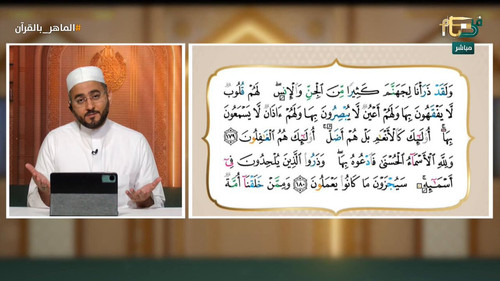 #الماهر_بالقرآن
مباشر
وَلَقَدْ ذَرَأْنَا لِجَهَنَّمَ كَثِيرًا مِّنَ الْجِنِّ وَالْإِنسِ ۖ لَهُمْ قُلُوبٌ
لَّا يَفْقَهُونَ بِهَا وَلَهُمْ أَعْيُنٌ لَّا يُبْصِرُونَ بِهَا وَلَهُمْ ءَاذَانٌ لَّا يَسْمَعُونَ
بِهَا ۚ أُولَٰئِكَ كَالْأَنْعَٰمِ بَلْ هُمْ أَضَلُّ ۚ أُولَٰئِكَ هُمُ الْغَٰفِلُونَ ١٧٩
وَلِلَّهِ الْأَسْمَاءُ الْحُسْنَىٰ فَادْعُوهُ بِهَا ۖ وَذَرُوا الَّذِينَ يُلْحِدُونَ فِي
أَسْمَٰئِهِ ۚ سَيُجْزَوْنَ مَا كَانُوا يَعْمَلُونَ ١٨٠ وَمِمَّنْ خَلَقْنَا أُمَّةٌ